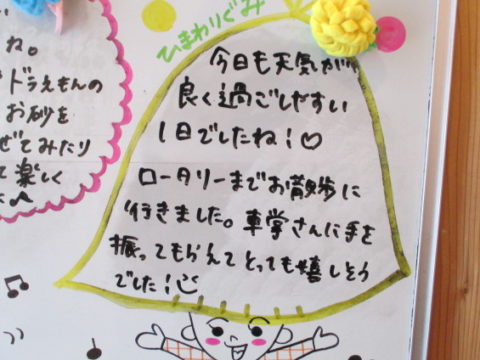 ね。
ドラえもんの
お砂を
ぜてみたり
て楽しく
ひまわりぐみ
今日も天気が
良く過ごしやすい
1日でしたね!
ロータリーまでお散歩に
行きました。車掌さんに手を
振ってもらえてとっても嬉しそう
でした!